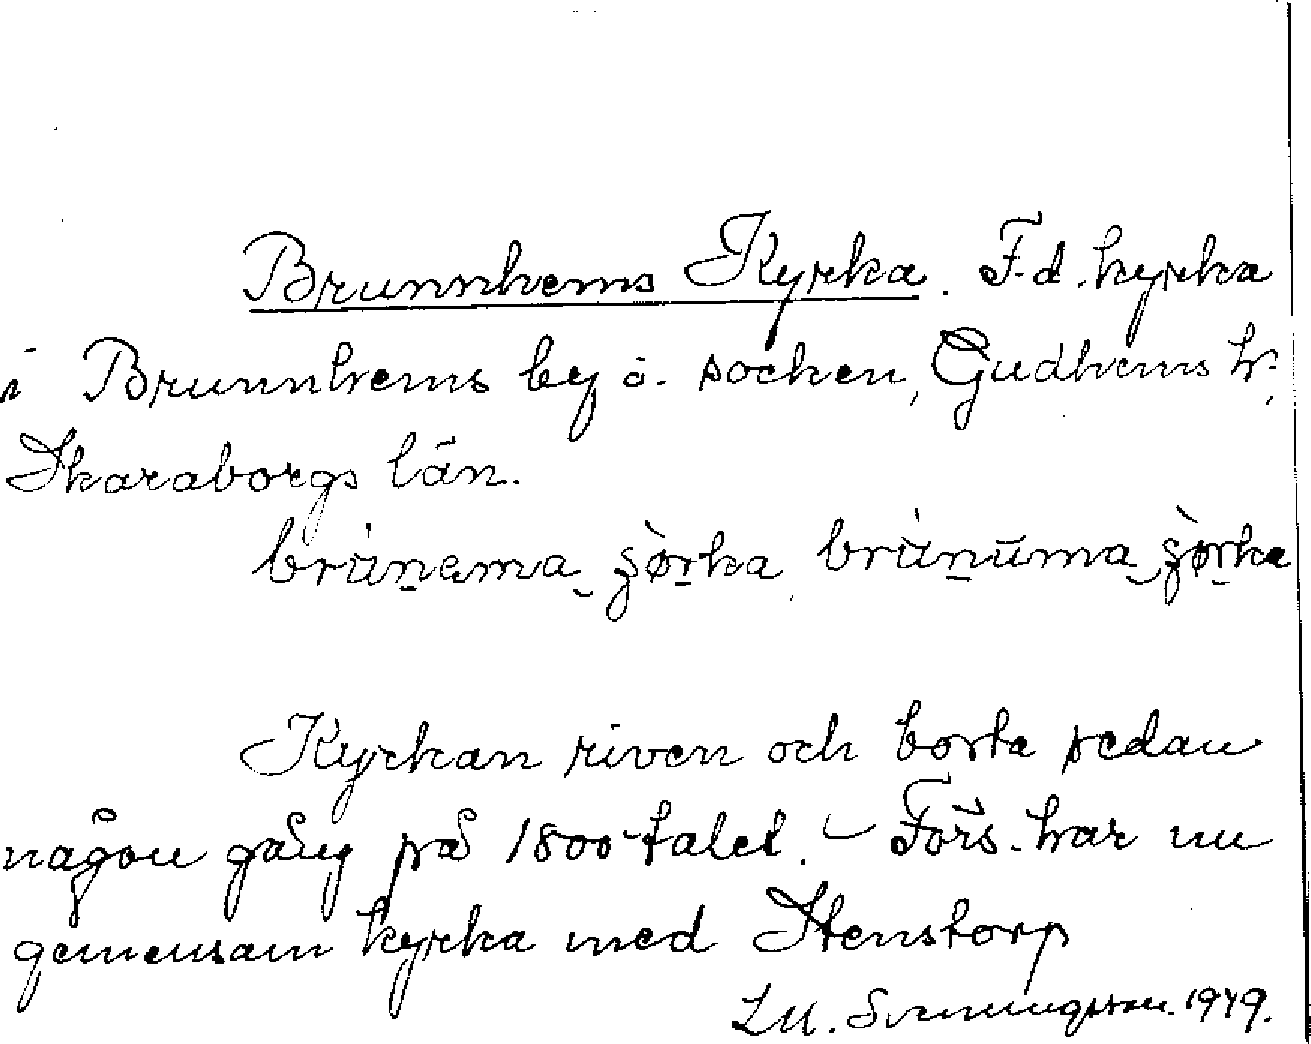 Brunnhems Kyrka. F.d. kyrka
i Brunnhems by o. socken, Gudhems hd,
Skaraborgs län.

Kyrkan riven och borta sedan
någon gång på 1800-talet. - Förs. har nu
gemensam kyrka med Stenstorp
1949.